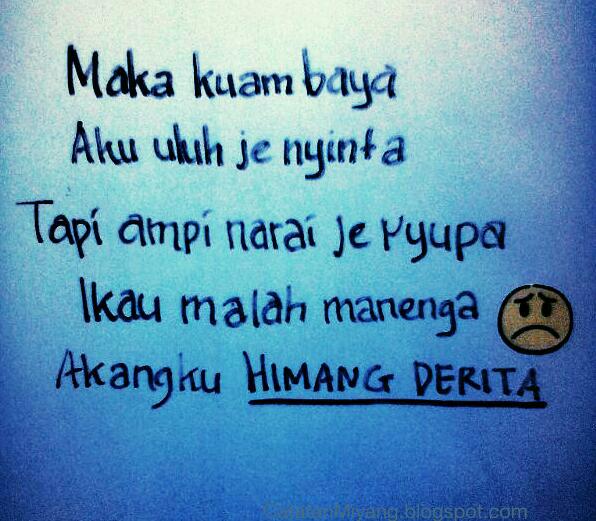 Maka kuam baya
Aku uluh je nyinta
Tapi ampi narai je
Ikau malah manenga
Akangku HIMANG DERITA
CatatanMiyang.blogspot.com